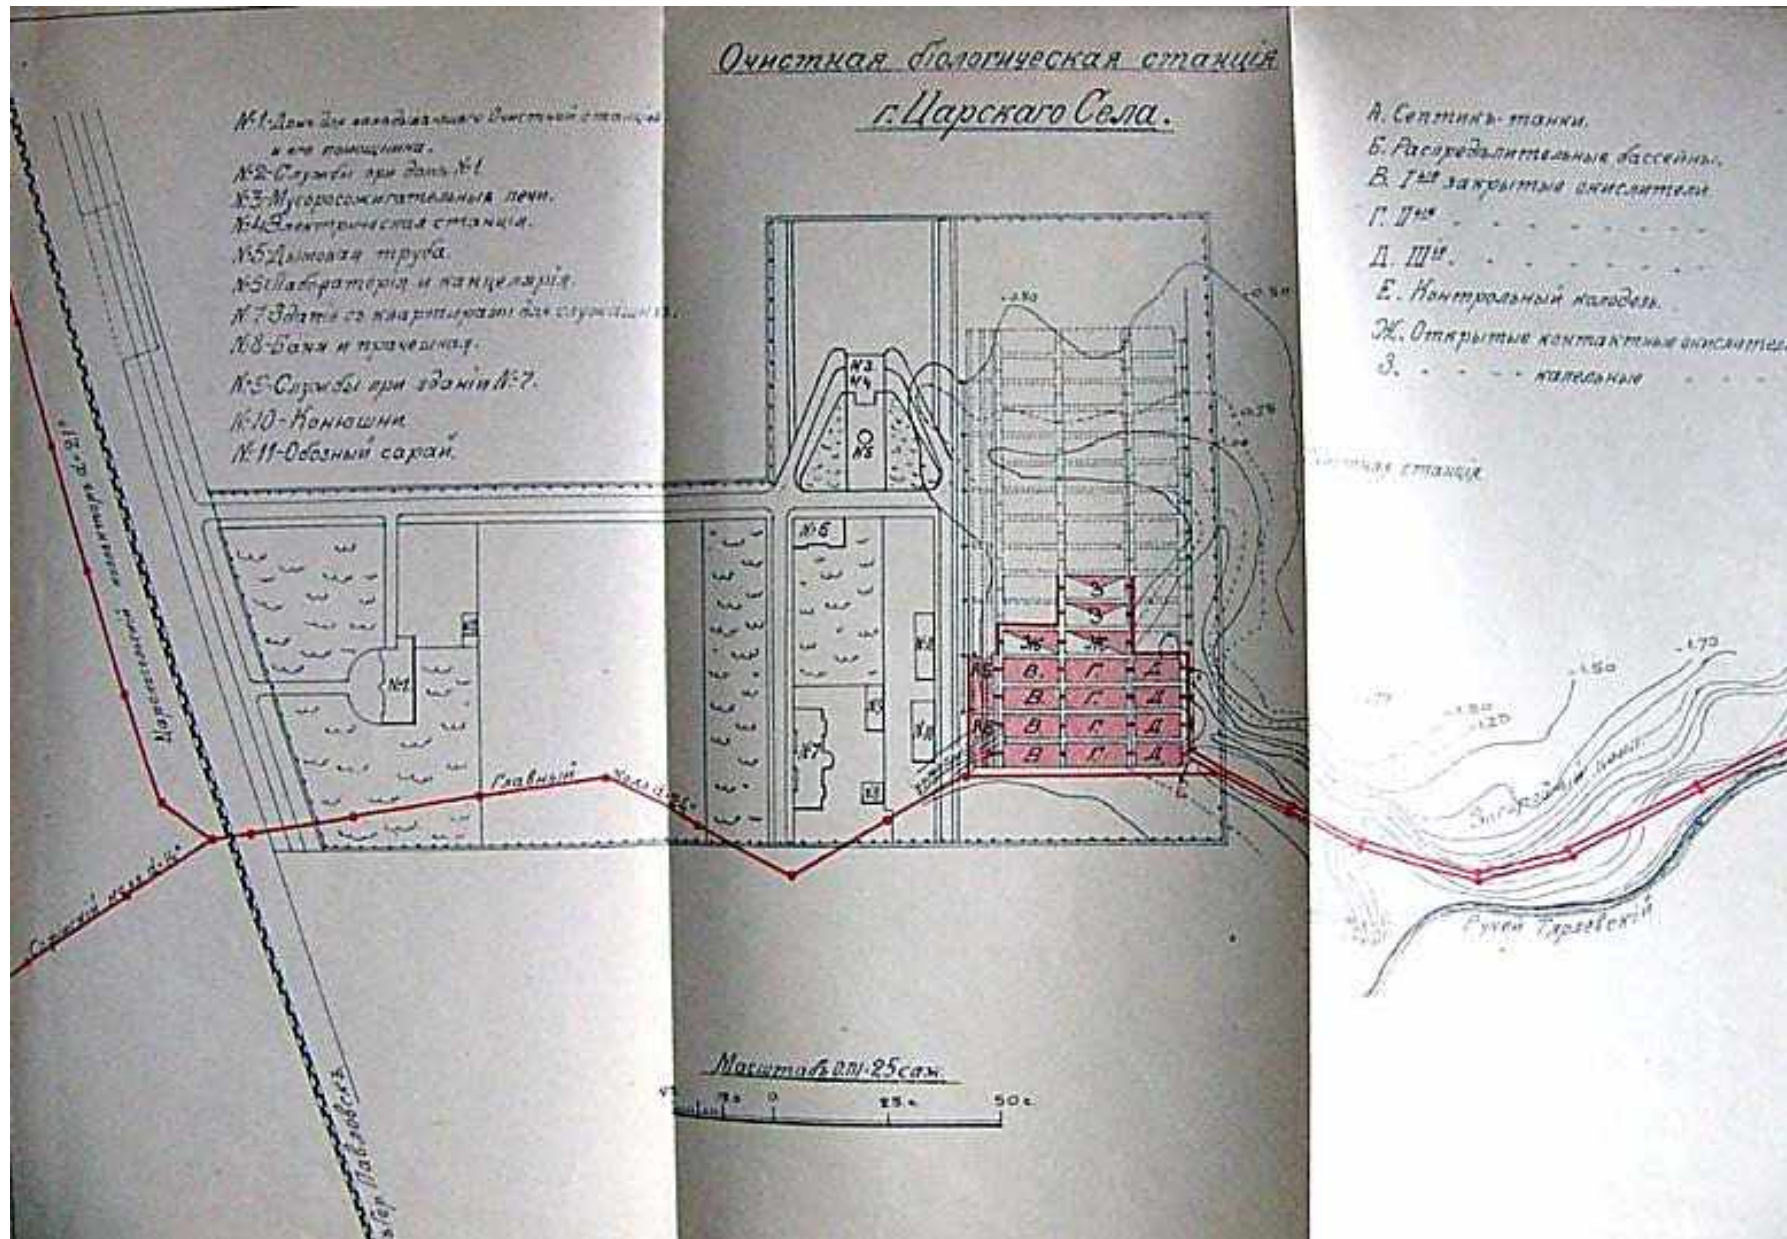 Очистная біологическая станція
г. Царскаго Села.
№1-Домъ для завѣдывающаго Очистной станціей
и его помощника.
№2-Службы при домѣ №1
№3-Мусоросожигательныя печи.
№4-Электрическая станція.
№5-Дымовая труба.
№6-Лабораторія и канцелярія.
№7-Зданіе съ квартирами для служащихъ.
№8-Баня и прачешная.
№9-Службы при зданіи №7.
№10-Конюшни
№11-Обозный сарай.
А. Септикъ-танки.
Б. Распредѣлительные бассейны.
В. Iые закрытые окислители
Г. IIые - - - - - -
Д. IIIіе. - - - - - -
Е. Контрольный колодезь.
Ж. Открытые контактные окислители
З. - - - - капельные - - -
станція
-0.50
-0.50
-0.75
№3
№4
№5
№6
№1
№7
№8
№10
З
З
Ж Ж
В. Г. Д
В Г. Д
В Г. Д
В Г. Д
Е
-1.70
-1.50
-1.50
-1.25
Главный
Ручей Тярлевскій
въ гор. Павловскъ
Масштабъ 0.01-25 саж.
0 25 с 50 с